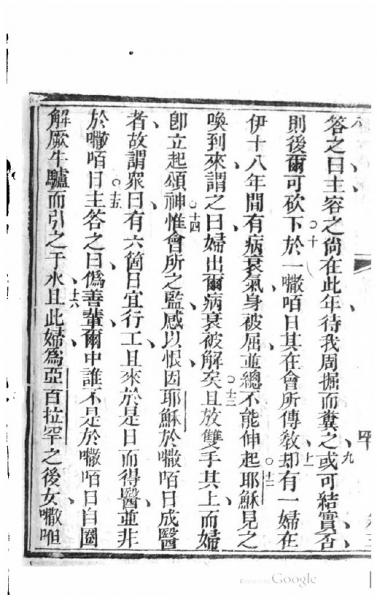 答之曰主容之尙在此年待我周掘而糞之或可結實否
九
則後爾可砍下於一嚈咟日其在會所傳敎却有一婦在
十
十一
伊十八年間有病衰氣身被屈並總不能伸起耶穌見之
十二
喚到來謂之曰婦出爾病衰被解矣且放雙手其上而婦
十三
卽立起頌神惟會所之監感以恨因耶穌於嚈咟日成醫
十四
者故謂衆曰有六箇日宜行工且來於是日而得醫並非
於嚈咟日主答之曰僞善輩爾中誰不是於嚈咟日自圈
十五
解厥牛驢而引之于水且此婦爲亞百拉罕之後女嚈咀
十六
Google